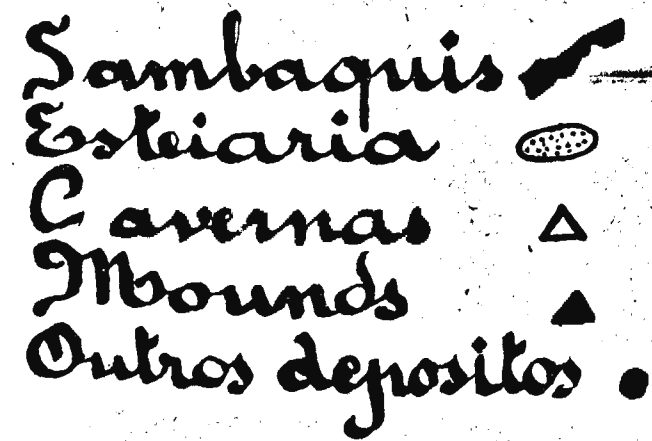 Sambaquis
Esteiaria
Cavernas
Mounds
Outros depositos